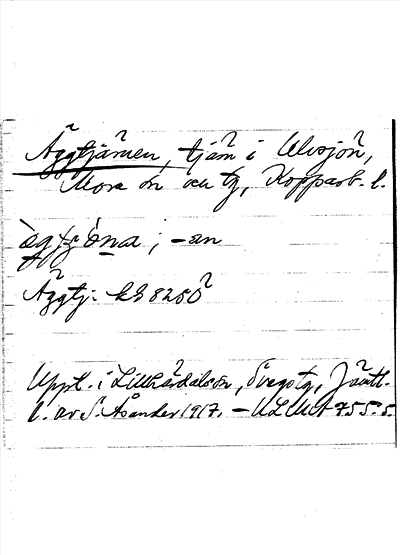 Äggtjärnen, tjärn i Ulvsjön,
Mora sn och tg, Kopparb. l.
ägtjɷ̀na; -an
Äggtj: kb 8250
Uppt. i Lillhärdalssn, Svegs tg, Jämtl.
l. av S. Åsander 1917. – ULMA 755. s.